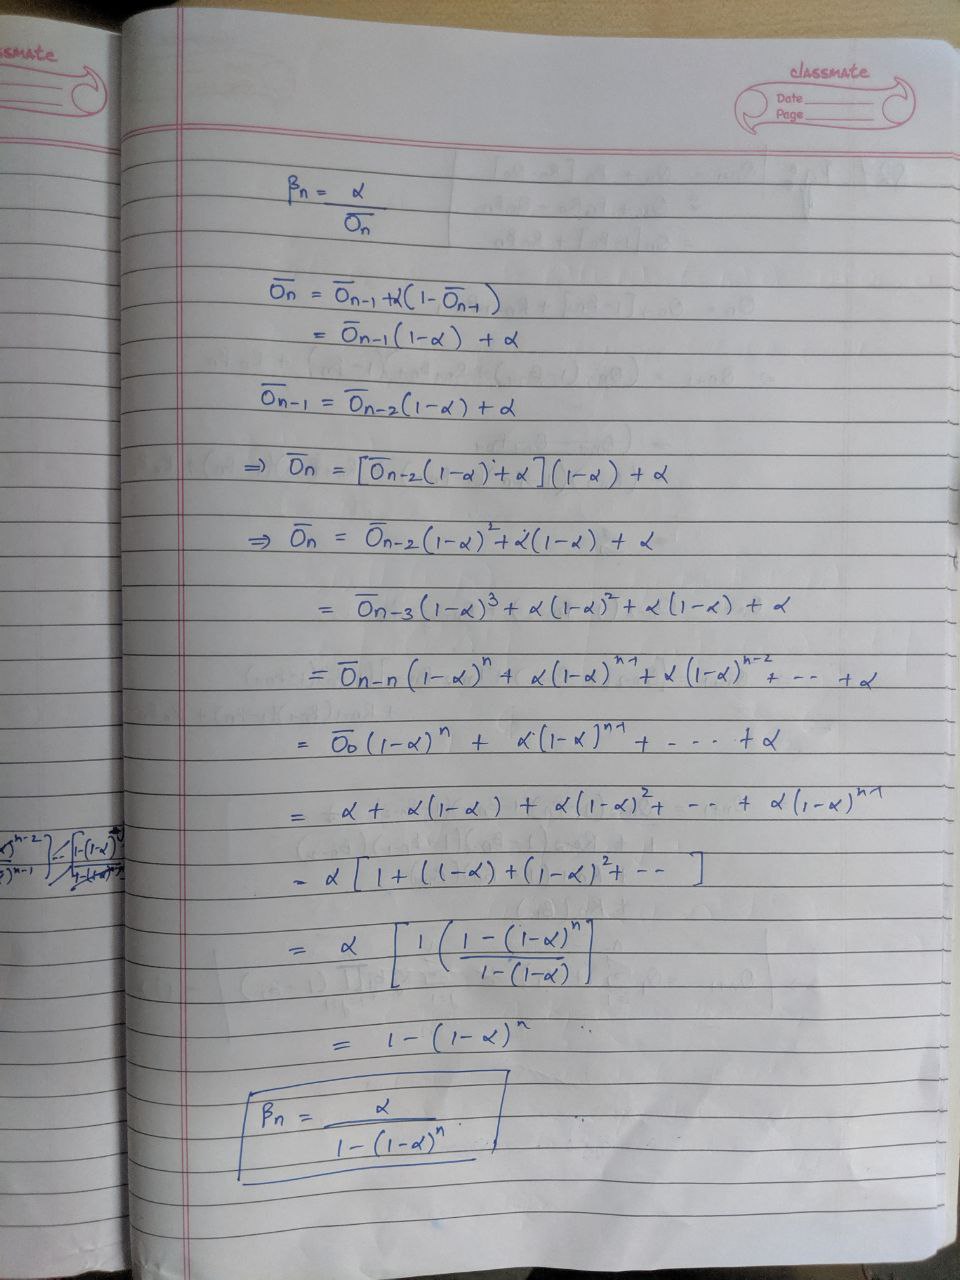 ssmate
classmate
Date
Page
βn = α
Ōn
Ōn = Ōn-1 + α(1 - Ōn-1)
= Ōn-1(1-α) + α
Ōn-1 = Ōn-2(1-α) + α
⇒ Ōn = [Ōn-2(1-α) + α](1-α) + α
⇒ Ōn = Ōn-2(1-α)² + α(1-α) + α
= Ōn-3(1-α)³ + α(1-α)² + α(1-α) + α
= Ōn-n(1-α)ⁿ + α(1-α)ⁿ⁻¹ + α(1-α)ⁿ⁻² + -- + α
= Ō₀(1-α)ⁿ + α(1-α)ⁿ⁻¹ + - - - - + α
= α + α(1-α) + α(1-α)² + - -- + α(1-α)ⁿ⁻¹
= α [1 + ((1-α) + (1-α)² + -- ]
= α [1 (1 - (1-α)ⁿ]
1-(1-α)
= 1 - (1-α)ⁿ
βn = α
1 - (1-α)ⁿ